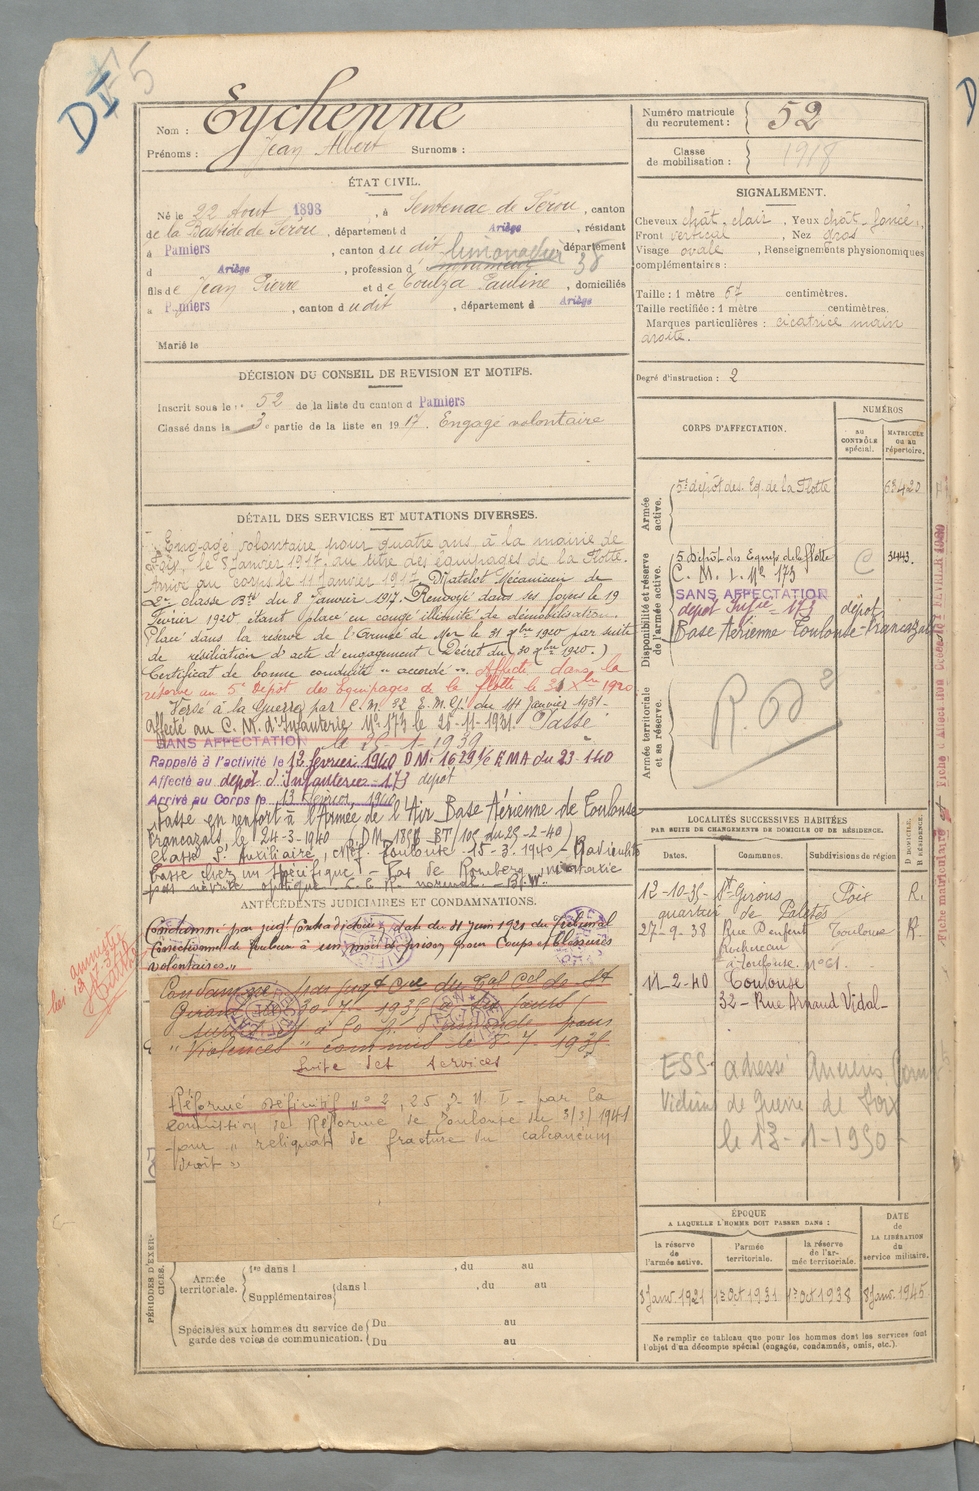 DI
5
Nom : Eychenne
Prénoms : Jean Albert Surnoms :
ÉTAT CIVIL.
Né le 22 Aout 1898, à Sentenac de Sérou, canton
de la Bastide de Sérou, département d Ariège, résidant
à Pamiers, canton du dit, département
d Ariège, profession d limonadier 38
fils de Jean Pierre et de Coulza Pauline, domiciliés
à Pamiers, canton dudit, département d Ariège
Marié le
DÉCISION DU CONSEIL DE REVISION ET MOTIFS.
Inscrit sous le n° 52 de la liste du canton d Pamiers
Classé dans la 3e partie de la liste en 1917. Engagé volontaire
DÉTAIL DES SERVICES ET MUTATIONS DIVERSES.
Engagé volontaire pour quatre ans à la mairie de
Foix, le 8 Janvier 1917, au titre des équipages de la Flotte.
Arrivé au corps le 11 Janvier 1917. Matelot Mécanicien de
2e classe Bté du 8 Janvier 1917. Renvoyé dans ses foyers le 19
Février 1920 étant placé en congé illimité de démobilisation.
Placé dans la réserve de l'Armée de Mer le 31 Xbre 1920 par suite
de résiliation d'acte d'engagement (Décret du 30 Xbre 1920.)
Certificat de bonne conduite "accordé". Affecté dans la
réserve au 5e Dépôt des Equipages de la flotte le 31 Xbre 1920
Versé à la Guerre par C.M. 32 E.M.G. du 14 Janvier 1931-
affecté au C. M. d'Infanterie N° 173 le 25-11-1931. Passé
SANS AFFECTATION le 25-1-1939
Rappelé à l'activité le 12 février 1940 D.M. 1629 EMA du 23-1-40
Affecté au dépôt d'Infanterie-173 dépôt
Arrivé au Corps le 13 février 1940
Passe en renfort à l'Armée de l'Air Base Aérienne de Toulouse
Francazals, le 24-3-1940
Classé S. Auxiliaire, Toulouse 15-3-1940
ANTÉCÉDENTS JUDICIAIRES ET CONDAMNATIONS.
Condamné par jugt Contradictoire, date du 11 juin 1921 du Tribunal
Correctionnel de à un mois de prison pour Coups et Blessures
volontaires."
amnistié
loi
Condamné par jugt du Tal Col de St
Girons 30-7-1935
à 50 f. d'amende pour
"Violences" commis le 8-7-1935
Suite des services
Réformé définitif n° 2, par la
Commission de Réforme de Toulouse du 3/3/1941
pour "reliquat de fracture du calcanéum
droit"
PÉRIODES D'EXERCICES.
Armée territoriale.
1re dans l , du au
Supplémentaires dans l , du au
Spéciales aux hommes du service de garde des voies de communication.
Du au
Du au
Numéro matricule du recrutement : 52
Classe de mobilisation : 1918
SIGNALEMENT.
Cheveux chât. clair, Yeux chât. foncé,
Front vertical, Nez gros
Visage ovale, Renseignements physionomiques
complémentaires :
Taille : 1 mètre 67 centimètres.
Taille rectifiée : 1 mètre centimètres.
Marques particulières : cicatrice main
droite.
Degré d'instruction : 2
CORPS D'AFFECTATION.
NUMÉROS
AU CONTRÔLE spécial.
MATRICULE ou au répertoire.
Armée active.
5e dépôt des Eq. de la Flotte
Disponibilité et réserve de l'armée active.
5 Dépôt des Equip. de la flotte 3443.
C. M. I. N° 173
SANS AFFECTATION
dépôt Infie-173 dépôt
Base Aérienne Toulouse-Francazals
Armée territoriale et sa réserve.
R.D 2
LOCALITÉS SUCCESSIVES HABITÉES
PAR SUITE DE CHANGEMENTS DE DOMICILE OU DE RÉSIDENCE.
Dates. Communes. Subdivisions de région
D DOMICILE, R RÉSIDENCE.
12-10-35- St Girons Foix R.
quartier de Paletès
27-9-38 Rue Denfert Toulouse R.
Rochereau
à Toulouse. n° 61.
11-2-40 Toulouse
32-Rue Arnaud Vidal-
ESS adressé Anciens
Victimes de Guerre de Foix
le 13-1-1950-
ÉPOQUE
A LAQUELLE L'HOMME DOIT PASSER DANS :
la réserve de l'armée active.
l'armée territoriale.
la réserve de l'armée territoriale.
DATE de LA LIBÉRATION du service militaire.
8 Janv. 1921 1er Oct 1931 1er Oct 1938 8 Janv. 1945
Ne remplir ce tableau que pour les hommes dont les services font
l'objet d'un décompte spécial (engagés, condamnés, omis, etc.).